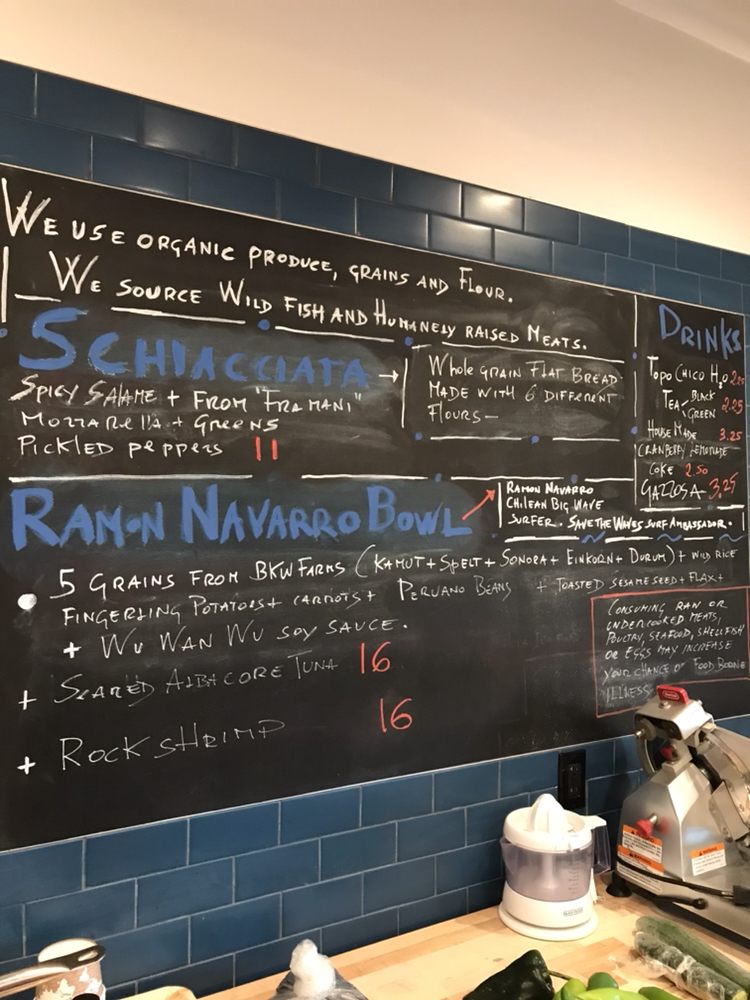 We use organic produce, grains and Flour.
We source Wild Fish and Humanely raised Meats.
SCHIACCIATA →
Spicy Salame + from "Fra'mani"
Mozzarella + Greens
Pickled peppers 11
Whole grain Flat Bread
made with 6 different
Flours —
DRINKS
Topo Chico H2O
Tea Black
Green 2.25
House Made 3.25
Cranberry Lemonade
Coke 2.50
Gazzosa 3.25
RAMON NAVARRO BOWL
Ramon Navarro
Chilean Big Wave
Surfer. Save the Waves Surf Ambassador.
5 Grains from BKW Farms (Kamut + Spelt + Sonora + Einkorn + Durum) + Wild Rice
Fingerling Potatoes + carrots + Peruano Beans + Toasted sesame seed + Flax +
+ Wu Wan Wu soy sauce.
+ Seared Albacore Tuna 16
+ Rock shrimp 16
Consuming raw or
undercooked meats,
poultry, seafood, shellfish
or eggs may increase
your chance of food borne
illness